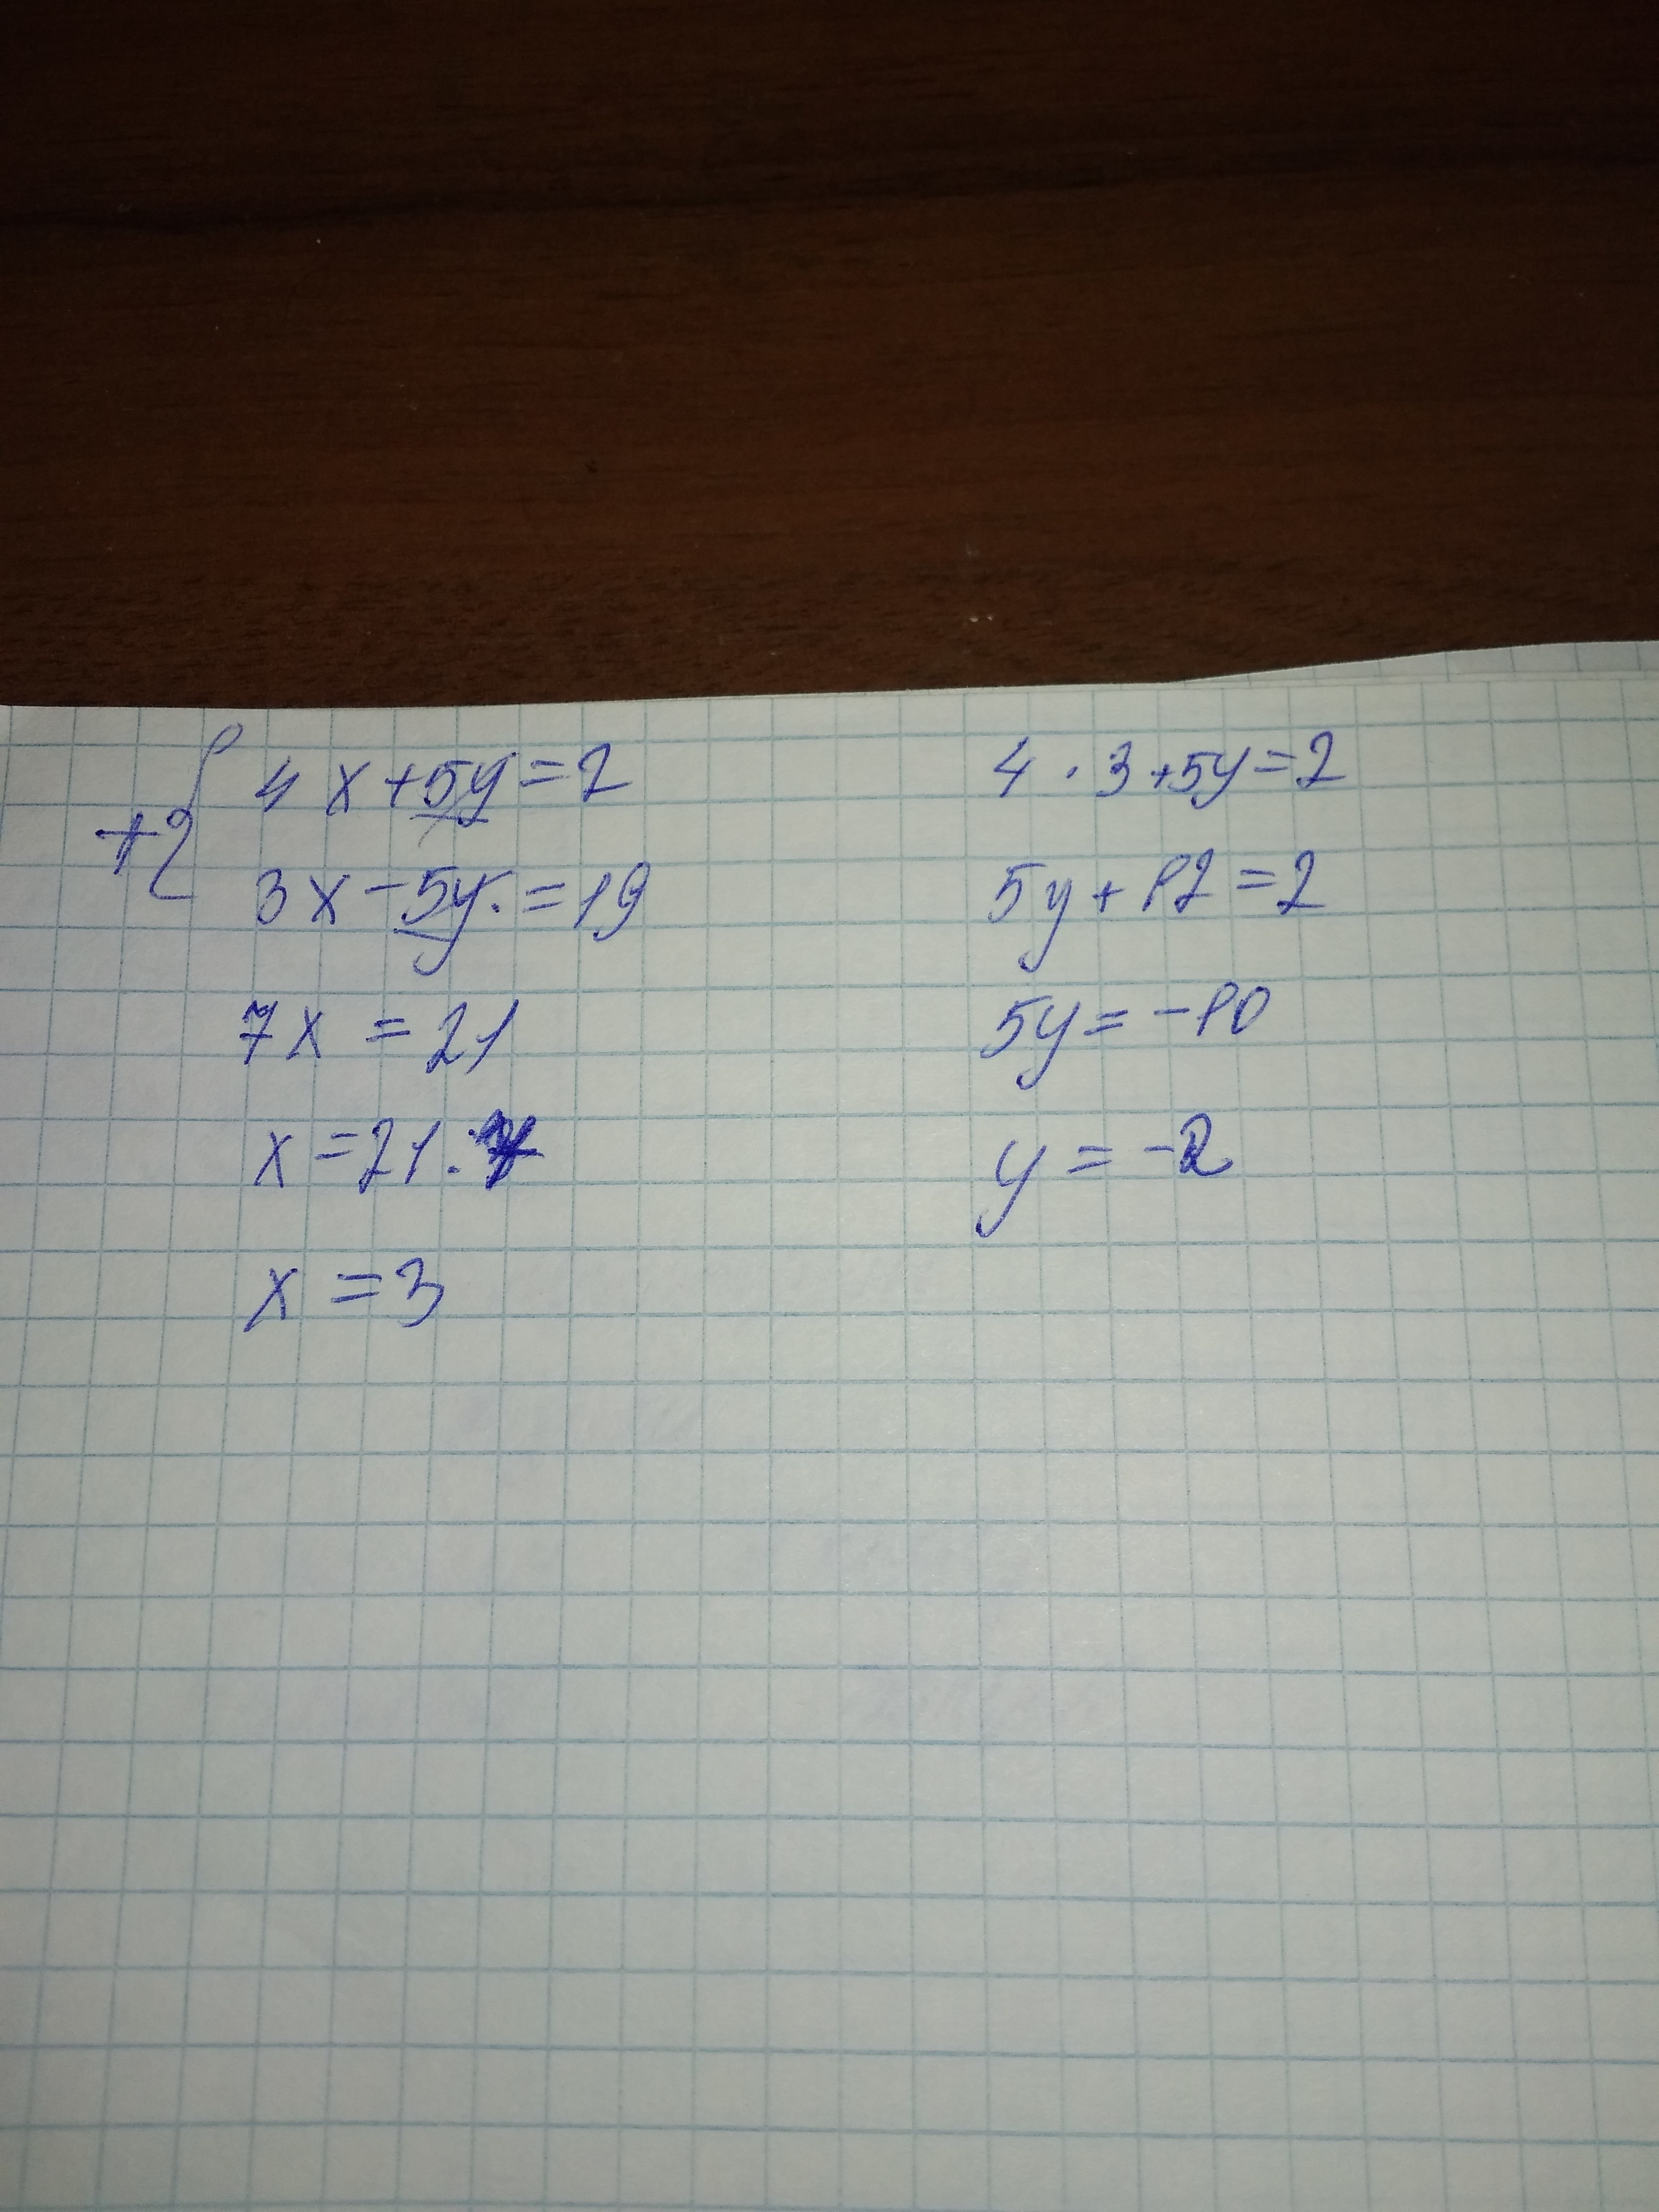 +{ 4x+5y=2
3x-5y.=19
7x=21
x=21:7
x=3
4·3+5y=2
5y+12=2
5y=-10
y=-2